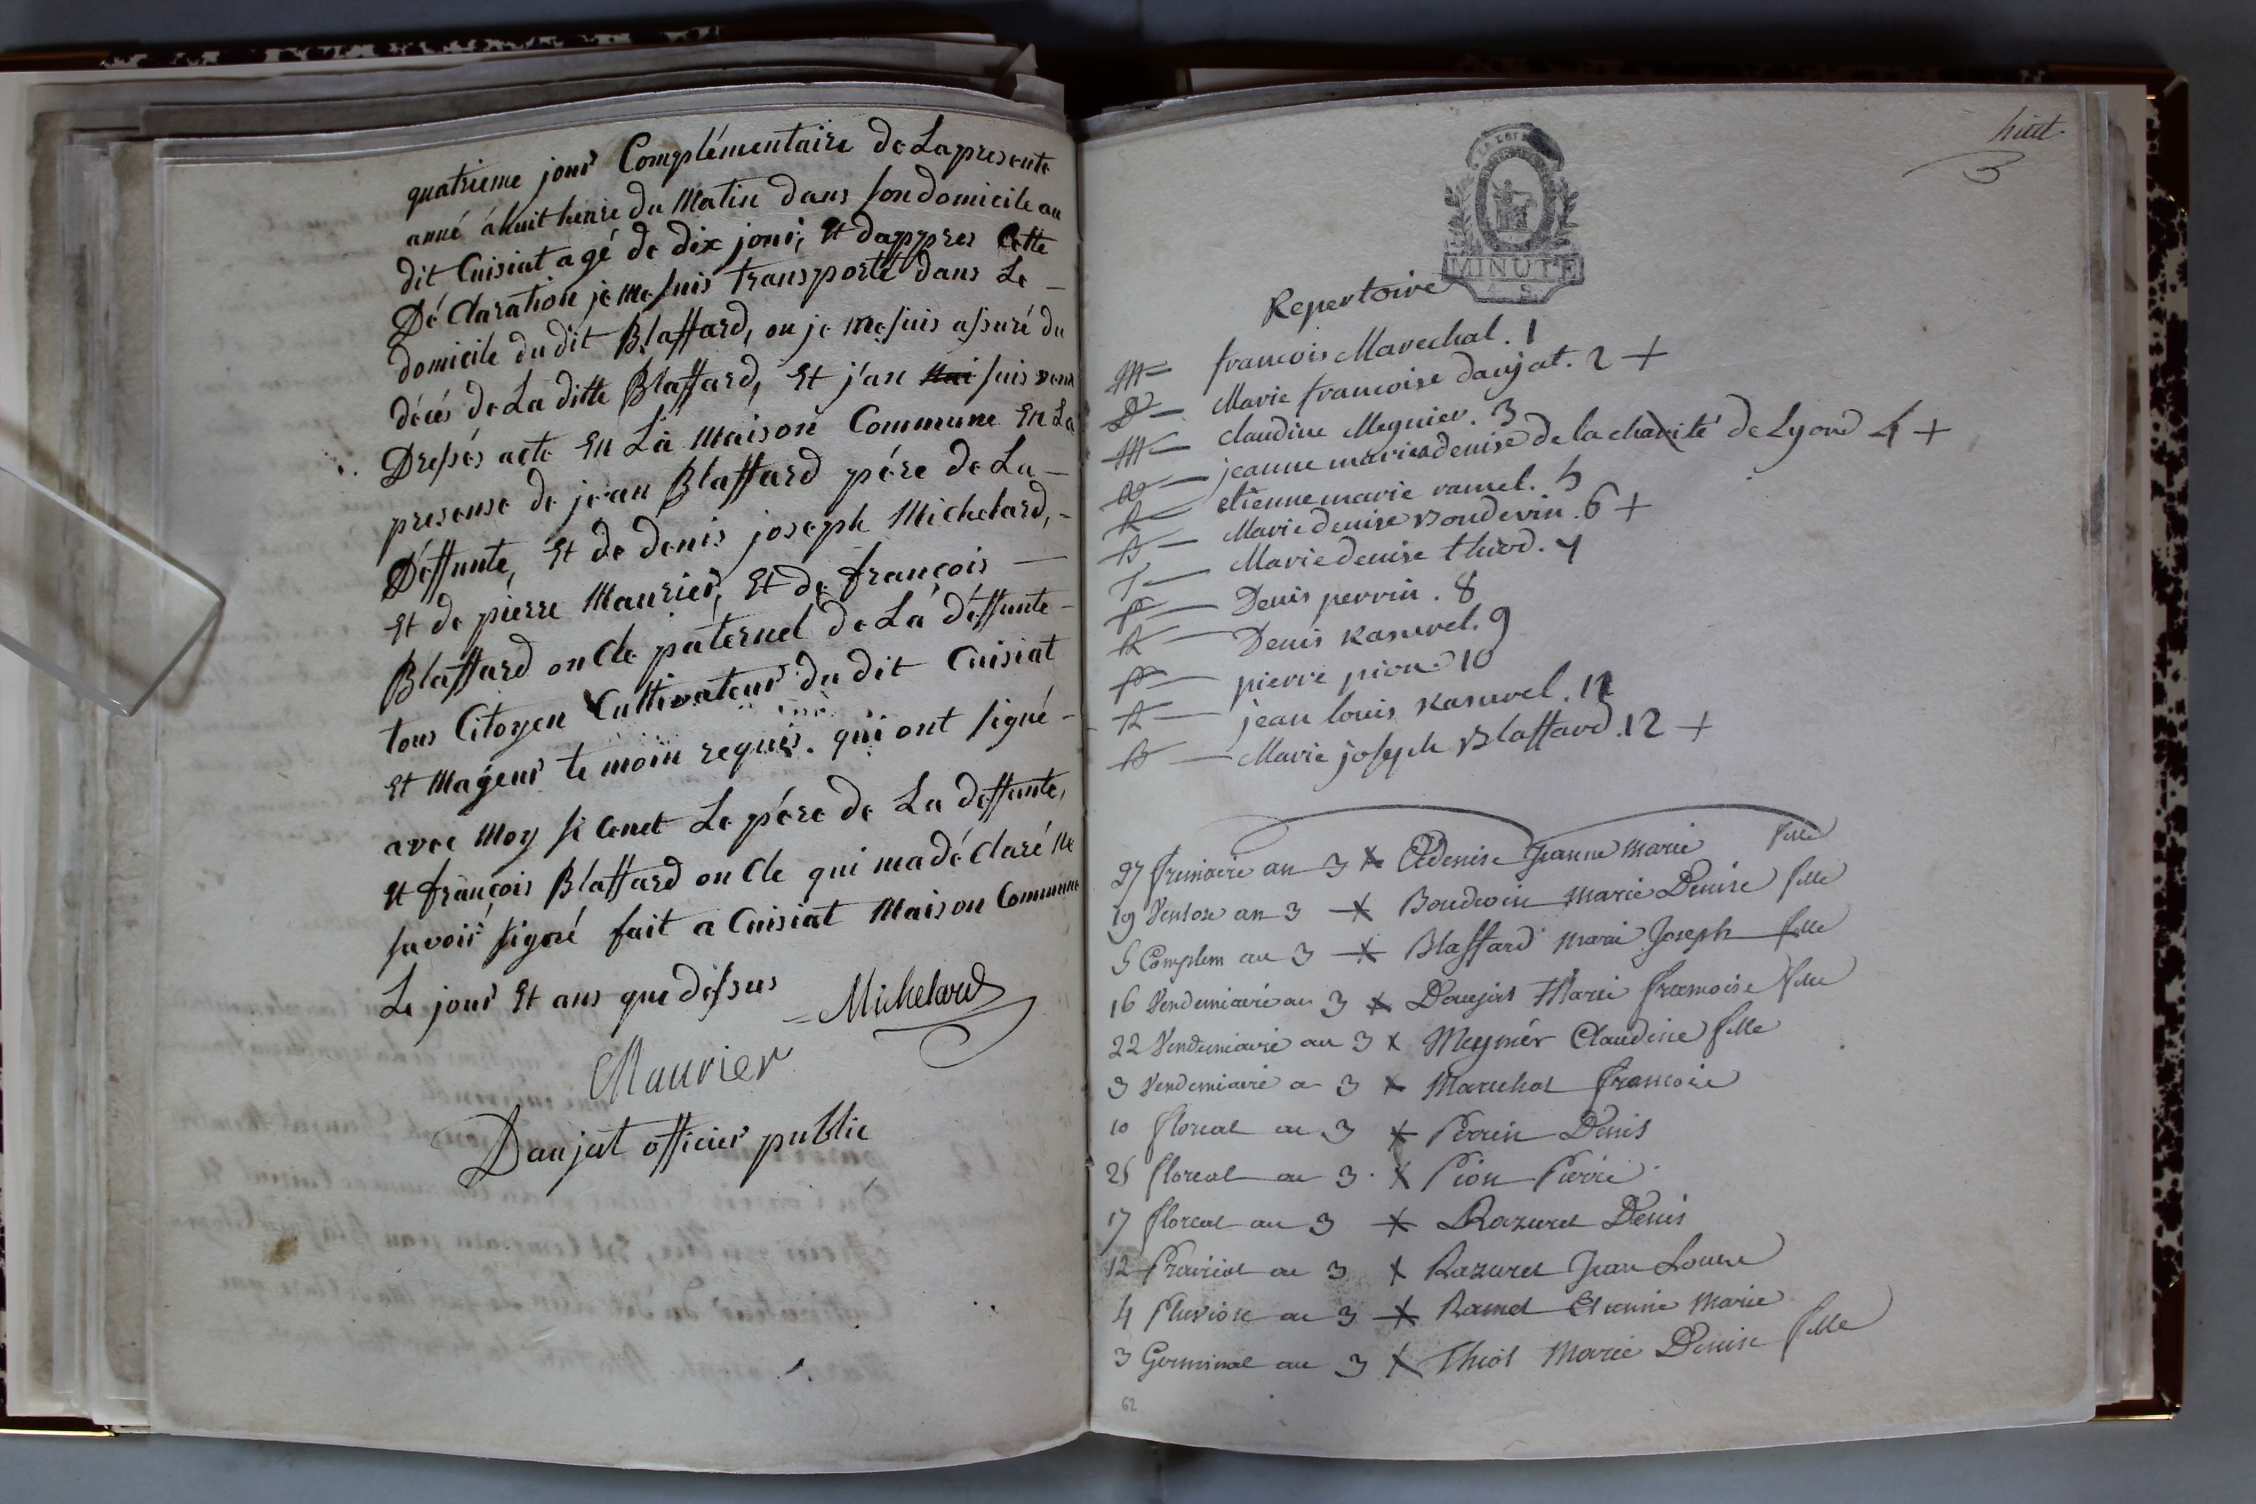 quatrieme jour Complémentaire de La presente
anné à huit heure du Matin dans son domicile au
dit Cuisiat agé de dix jour, Et dappres Cette
Dé Claration je me suis transporté dans Le
domicile du dit Blaffard, ou je me suis assuré du
décés de La ditte Blaffard, Et j'an suis venu
Dressés acte En La Maison Commune En La
presense de jean Blaffard pére de La
Déffunte, Et de denis joseph Michelard,
Et de pierre Maurier, Et de françois
Blaffard oncle paternel de La déffunte
tous Citoyen Cultivateur du dit Cuisiat
Et Mageur te moin requis. qui ont signé
avec Moy si Cenet Le pére de La deffunte,
Et françois Blaffard on Cle qui ma dé Claré Ne
savoir signé fait a Cuisiat Maison Commune
Le jour Et ans que dessus
Michelard
Maurier
Daujat officier public
huit
3
MINUTE
Repertoire
M francois Marechal. 1
D Marie francoise daujat. 2 +
M claudine Megnier. 3
jeanne marie adenise de la charité de Lyon 4 +
R etienne marie ramel. 5
B Marie denise Boudevin. 6 +
T Marie denise thiod. 7
P Denis perrin. 8
R Denis Rasurel. 9
P pierre pion. 10
R jean louis Rasurel. 11
B Marie joseph Blaffard. 12 +
27 frimaire an 3 x Adenise Jeanne Marie fille
19 Ventose an 3 x Boudevin Marie Denise fille
5 Complem an 3 x Blaffard Marie Joseph fille
16 Vendemiaire an 3 x Daujat Marie francoise fille
22 Vendemiaire an 3 x Meynier Claudine fille
9 Vendemiaire a 3 x Marechal francois
10 floreal an 3 x Perrin Denis
25 floreal an 3 x Pion Pierre
17 floreal an 3 x Razurel Denis
12 Prairial an 3 x Razurel Jean Louis
4 Pluviose an 3 x Ramel Etienne Marie
3 Germinal an 3 x Thiot Marie Denise fille
62